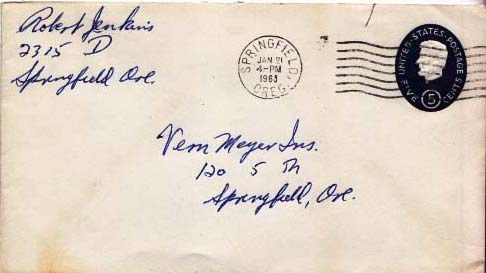 Robert Jenkins
2315 D
Springfield Ore.
SPRINGFIELD,
JAN 21
4-PM
1963
OREG.
UNITED·STATES·POSTAGE
FIVE 5 CENTS
Vern Meyer Ins.
120 5 Th
Springfield, Ore.